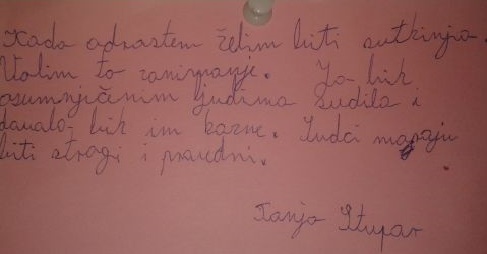 Kada odrastem želim biti sutkinja.
Volim to zanimanje. Ja bih
osumnjičenim ljudima sudila i
davala bih im kazne. Sudci moraju
biti strogi i pravedni.
Tanja Stupar